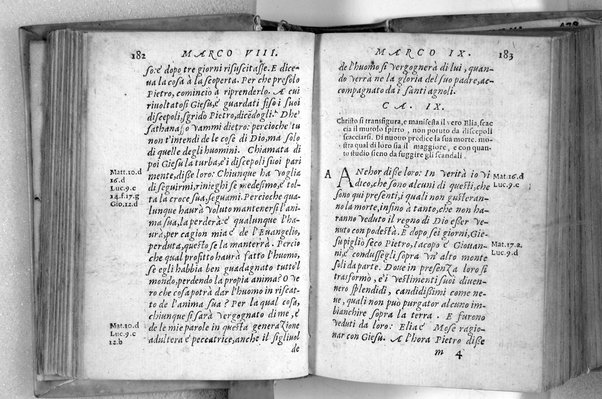 182 MARCO VIII.
so: é dopo tre giorni risuscitasse. E dice-
ua la cosa à la scoperta. Per che presolo
Pietro, comincio à riprenderlo. A cui
riuoltatosi Giesu, é guardati fiso i suoi
discepoli, sgrido Pietro, dicēdogli: Dhe
sathanasso vammi dietro: percioche tu
non t'intendi de le cose di Dio, ma solo
di quelle degli huomini. Chiamata di
poi Giesu la turba, é i discepoli suoi pari
mente, disse loro: Chiunque ha voglia
di seguirmi, rinieghi se medesimo, é tol-
ta la croce sua, seguami. Percioche qua-
lunque haurà voluto mantenersi l'ani-
ma sua, la perderà: é qualunque l'ha-
rà, per cagion mia é de l'Euangelio,
perduta, questo se la manterrà. Percio
che qual profitto haurà fatto l'huomo,
se egli habbia ben guadagnato tutto'l
mondo, perdendo la propia anima? O ve
ro che cosa potrà dar l'huomo in riscat-
to de l'anima sua? Per la qual cosa,
chiunque si sarà vergognato di me, é
de le mie parole in questa generazione
adultera é peccatrice, anche il figliuol
de
Matt.10.d
16.d
Luc.9.c
14.f.17.g
Gio.12.d
Mat.10.d
Luc.9.c
12.b
MARCO IX. 183
de l'huomo si vergognerà di lui, quan-
do verrà ne la gloria del suo padre, ac-
compagnato da i santi agnoli.
CA. IX.
Christo si transfigura, e manifesta il vero Elia, scac
cia il mutolo spirto, non potuto da discepoli
scacciarsi. Di nuouo predice la sua morte. mo-
stra qual di loro sia il maggiore, e con quan-
to studio sieno da fuggire gli scandali.
A ANchor disse loro: In verità io vi
dico, che sono alcuni di questi, che
son qui presenti, i quali non gusteran-
no la morte, insino à tanto, che non ha-
ranno veduto il regno di Dio esser ve-
nuto con podestà. E dopo sei giorni, Gie-
su piglio seco Pietro, Iacopo é Giouan-
ni, é condussegli sopra vn' alto monte
soli da parte. Doue in presenza loro si
trasformò, é i vestimenti suoi diuen-
nero splendidi, candidissimi come ne-
ue, quali non può purgator alcuno im-
bianchire sopra la terra. E furono
veduti da loro: Elia é Mose ragio-
nar con Giesù. A l'hora Pietro disse
m 4
Mat.16.d
Luc.9.c
Mat.17.a
Luc.9.d